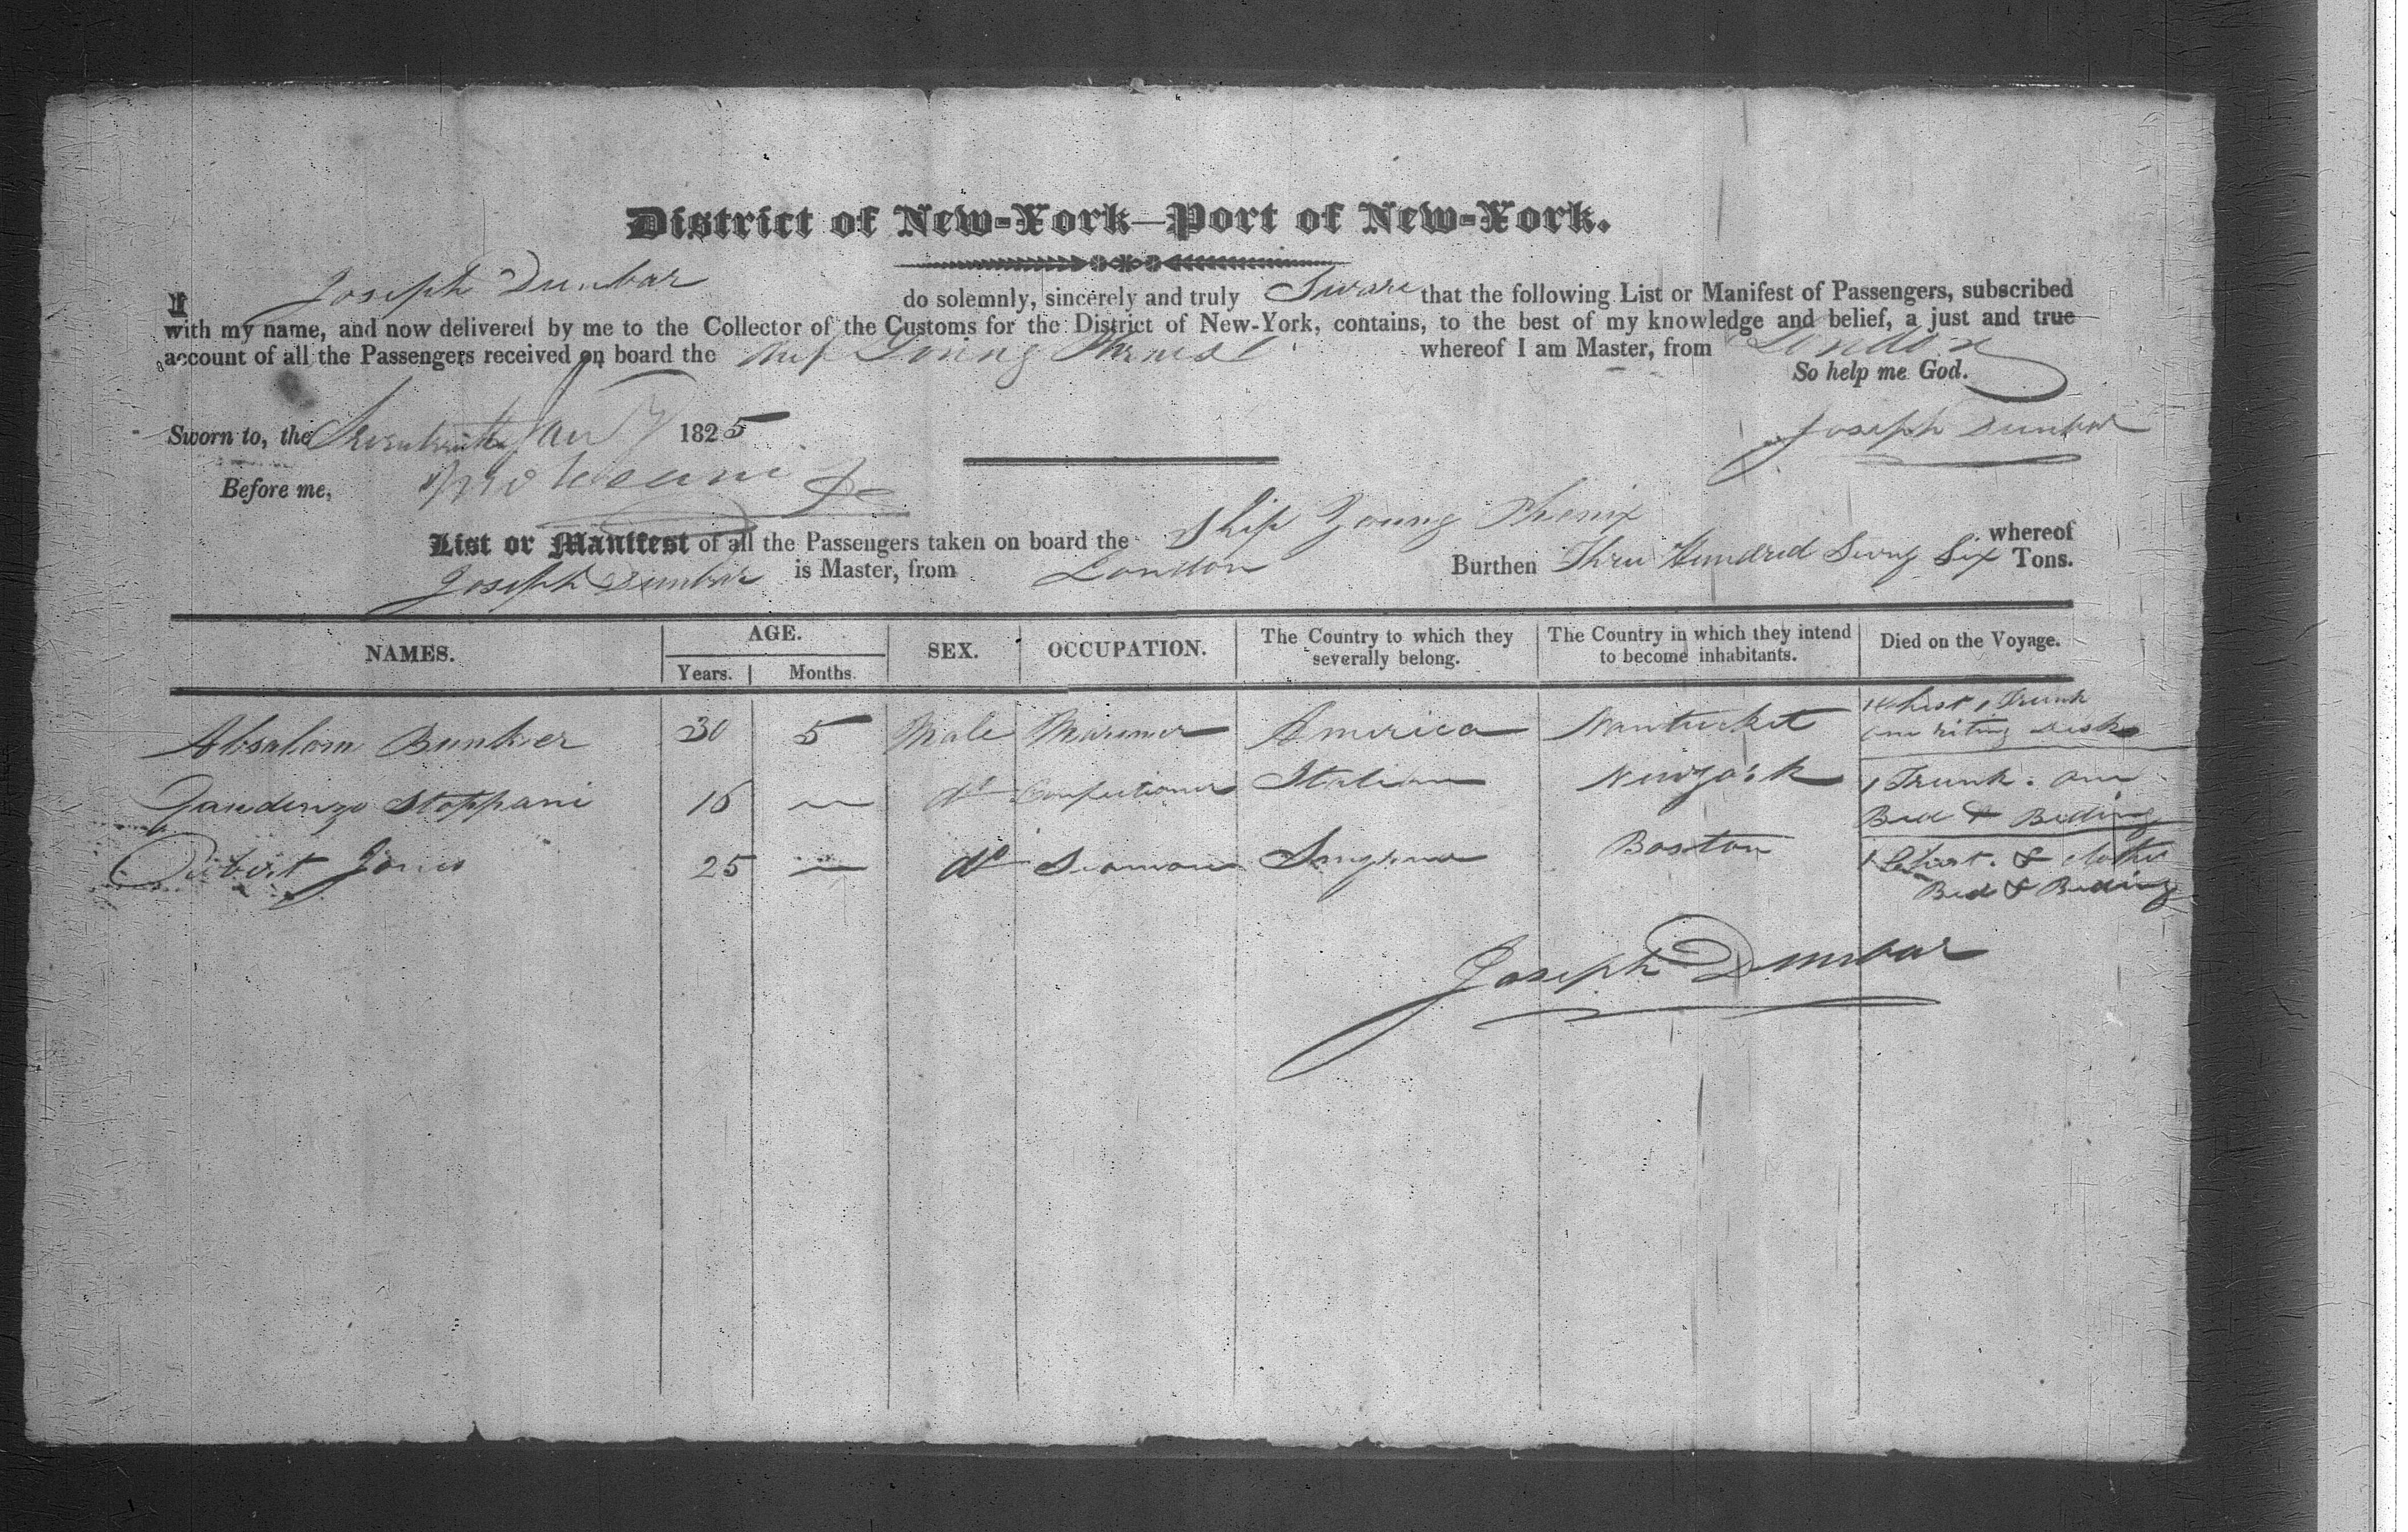 District of New-York—Port of New-York.
I Joseph Dunbar do solemnly, sincerely and truly Sware that the following List or Manifest of Passengers, subscribed
with my name, and now delivered by me to the Collector of the Customs for the District of New-York, contains, to the best of my knowledge and belief, a just and true
account of all the Passengers received on board the Ship Young whereof I am Master, from London
So help me God.
Sworn to, the Jan 1825
Joseph Dunbar
Before me,
List or Manifest of all the Passengers taken on board the Ship Young Phenix whereof
Joseph Dunbar is Master, from London Burthen Three Hundred Six Tons.
NAMES. AGE. SEX. OCCUPATION. The Country to which they severally belong. The Country in which they intend to become inhabitants. Died on the Voyage.
Years. Months.
Absalom Bunker 30 5 Male Mariner America Nantucket 1 Chest 1 Trunk
one riting desk
Gaudenzo Stoppani 16 — do Confectioner Italian Newyork 1 Trunk. one
Bed & Beding
Jones 25 — do Seaman Boston 1 Chest. &
Bed & Beding
Joseph Dunbar